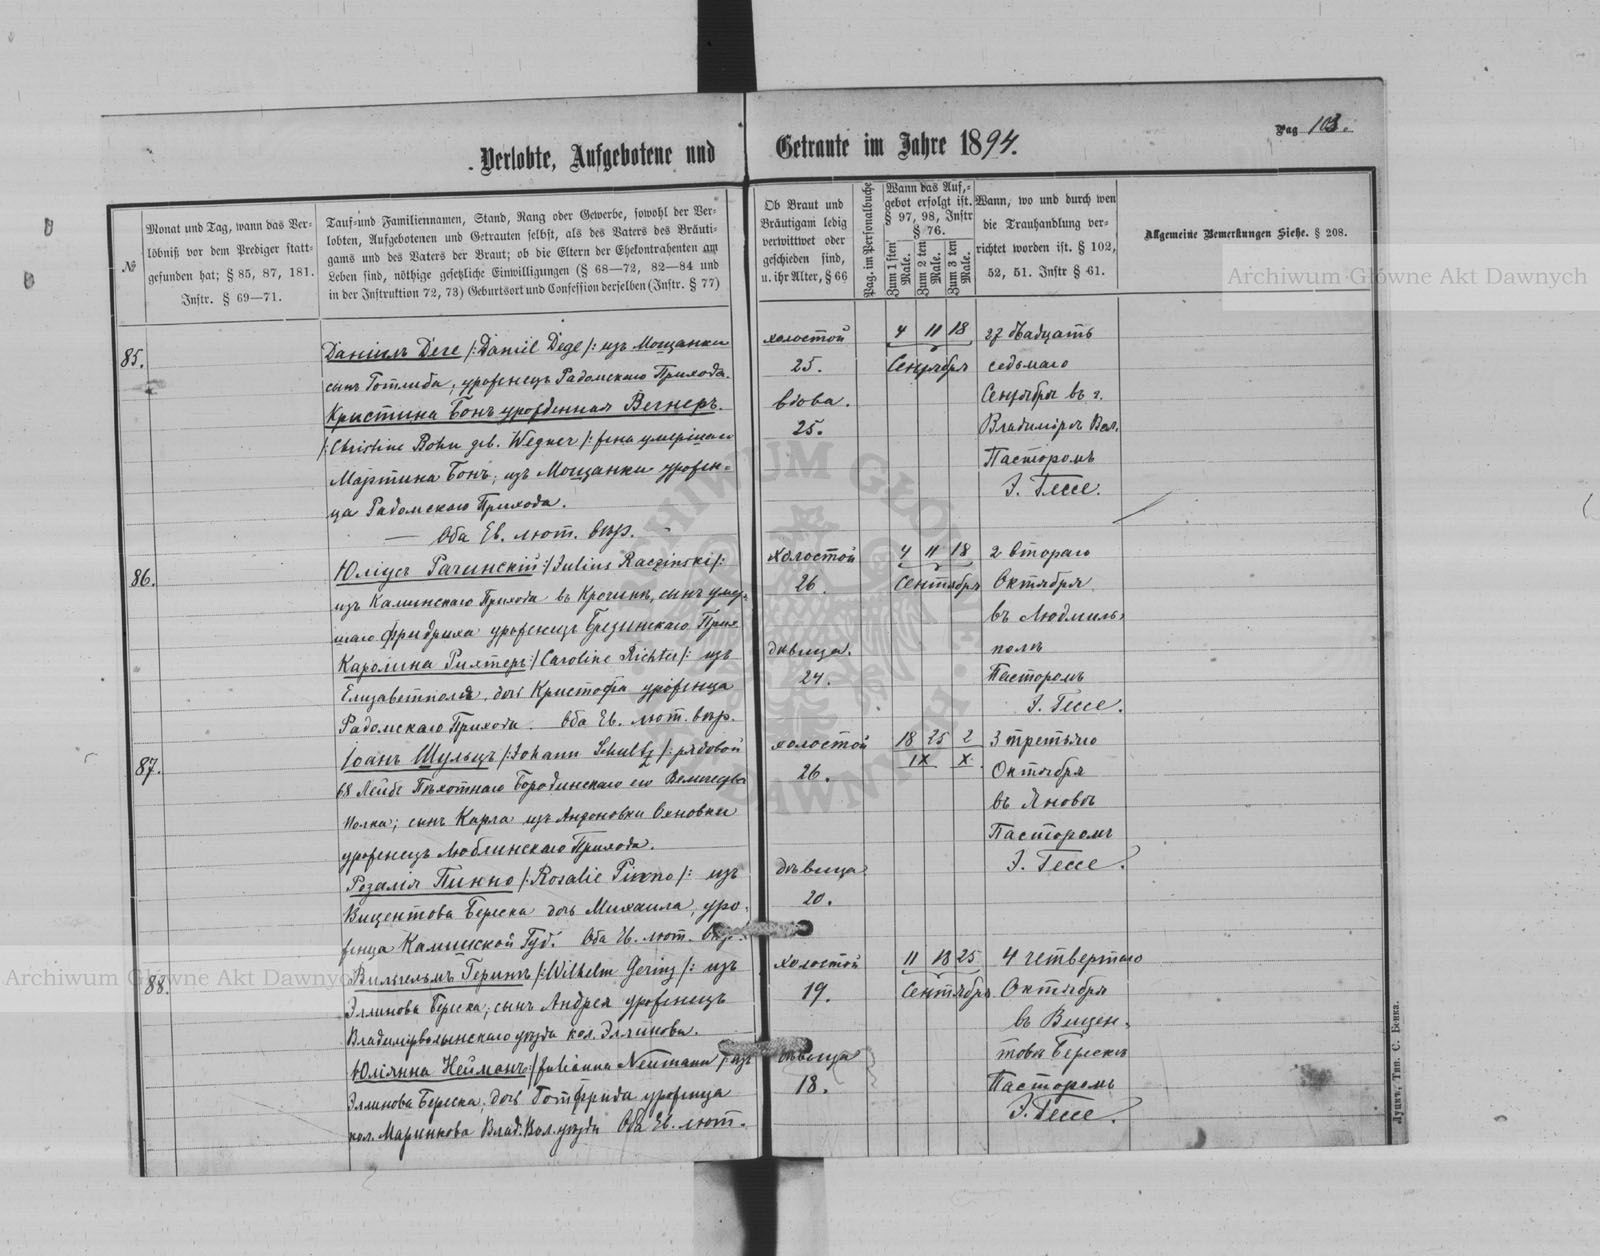 Verlobte, Aufgebotene und Getraute im Jahre 1894.
Pag 103.
№
Monat und Tag, wann das Ver-
löbniß vor dem Prediger statt-
gefunden hat; § 85, 87, 181.
Instr. § 69—71.
Tauf-und Familiennamen, Stand, Rang oder Gewerbe, sowohl der Ver-
lobten, Aufgebotenen und Getrauten selbst, als des Vaters des Bräuti-
gams und des Vaters der Braut; ob die Eltern der Ehekontrahenten am
Leben sind, nöthige gesetzliche Einwilligungen (§ 68—72, 82—84 und
in der Instruktion 72, 73) Geburtsort und Confession derselben (Instr. § 77)
Ob Braut und
Bräutigam ledig
verwittwet oder
geschieden sind,
u. ihr Alter, § 66
Pag. im Personalbuche
Wann das Auf-
gebot erfolgt ist.
§ 97, 98, Instr
§ 76.
Zum 1 ten Male.
Zum 2 ten Male.
Zum 3 ten Male.
Wann, wo und durch wen
die Trauhandlung ver-
richtet worden ist. § 102,
52, 51. Instr § 61.
Allgemeine Bemerkungen Siehe. § 208.
85.
Данiилъ Деге /: Daniel Dege /: изъ Мощанки
сынъ Готлиба, уроженецъ Радомскаго Прихода.
Кристина Бонъ урожденная Вегнеръ.
/: Christine Bohn geb. Wegner /: жена умершаго
Мартина Бонъ; изъ Мощанки урожен-
ца Радомскаго Прихода.
— Оба Ев. лют. вѣр. —
холостой
25.
вдова.
25.
4 11 18
Сентября
27 двадцать
седьмаго
Сентября въ г.
Владимiрѣ Вол.
Пасторомъ
Э. Гессе.
86.
Юлiусъ Рачинскiй /: Julius Raczinski /:
изъ Калишскаго Прихода въ сынъ умер-
шаго Фридриха уроженецъ Брезинскаго Прих.
Каролина Рихтеръ /: Caroline Richter /: изъ
Елизаветполя, дочь Кристофа уроженца
Радомскаго Прихода. Оба Ев. лют. вѣр.
холостой
26.
дѣвица.
24.
4 11 18
Сентября
2 втораго
Октября
въ Людмиль-
полѣ
Пасторомъ
Э. Гессе.
87.
Iоанъ Шульцъ /: Johann Schultz /: рядовой
68 Лейбъ Пѣхотнаго Бородинскаго его Величества
Полка; сынъ Карла изъ Антоновки
уроженецъ Люблинскаго Прихода.
Розалiя Пинно /: Rosalie Pinno /: изъ
Вицентова Береска дочь Михаила, уро-
женца Калишской Губ. Оба Ев. лют. вѣр.
холостой
26.
дѣвица
20.
18 25 2
IX X.
3 третьяго
Октября
въ Яновѣ
Пасторомъ
Э. Гессе.
88.
Вильгельмъ Герингъ /: Wilhelm Gering /: изъ
Эллинова Береска; сынъ Андрея уроженецъ
Владимiрволынскаго уѣзда кол. Эллинова.
Юлiянна Нейманъ /: Julianna Neumann /: изъ
Эллинова Береска, дочь Готфрида уроженца
кол. Маринкова Влад. Вол. уѣзда Оба Ев. лют.
холостой
19.
дѣвица
18.
11 18 25
Сентября
4 четвертаго
Октября
въ Вицен-
товѣ Берескѣ
Пасторомъ
Э. Гессе.
Луцкъ, Тип. С. Бенка.
Archiwum Główne Akt Dawnych
Archiwum Główne Akt Dawnych
ARCHIWUM GŁÓWNE AKT DAWNYCH